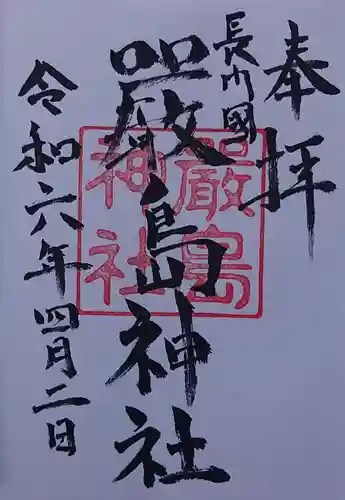 奉拝
長門國
嚴島神社
令和六年四月二日
嚴島
神社